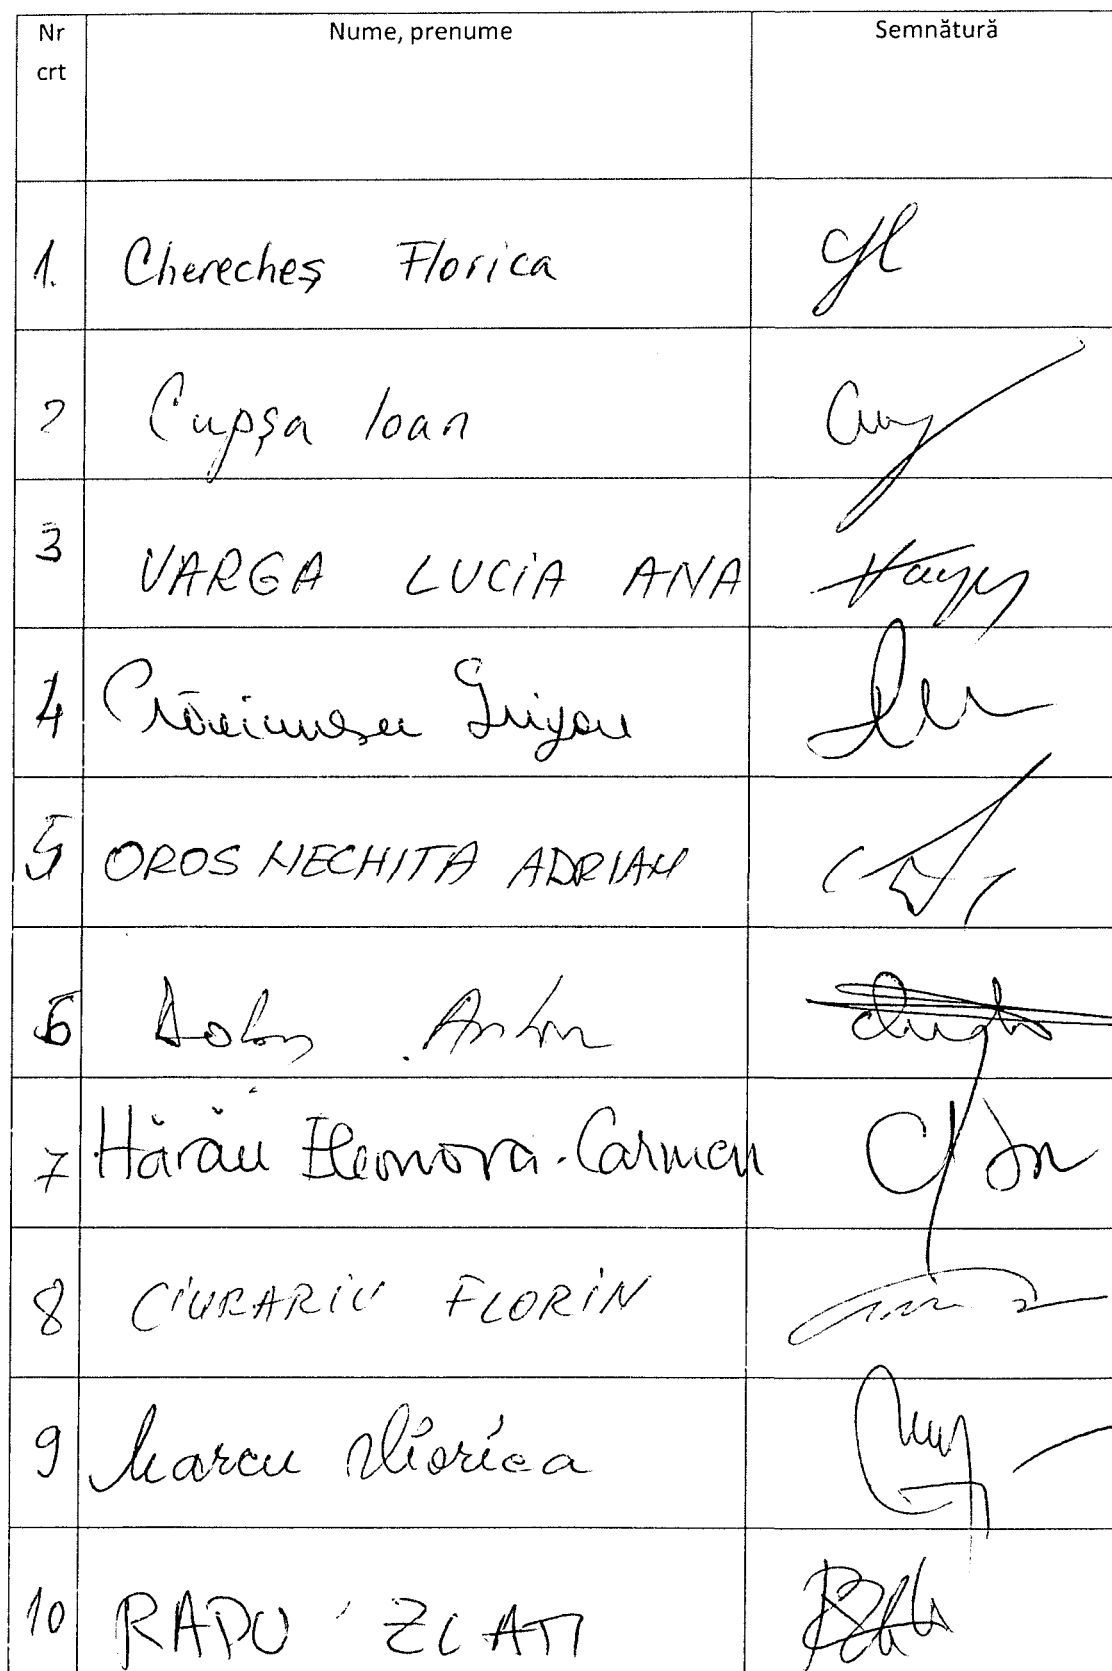 Nr Nume, prenume Semnătură
crt
1. Cherecheș Florica
2 Cupșa Ioan
3 VARGA LUCIA ANA
4 Crăciunescu Grigore
5 OROS NECHITA ADRIAN
6 Anton
7 Hărău Eleonora-Carmen
8 CIURARIU FLORIN
9 Marcu Viorica
10 RADU ZLATI